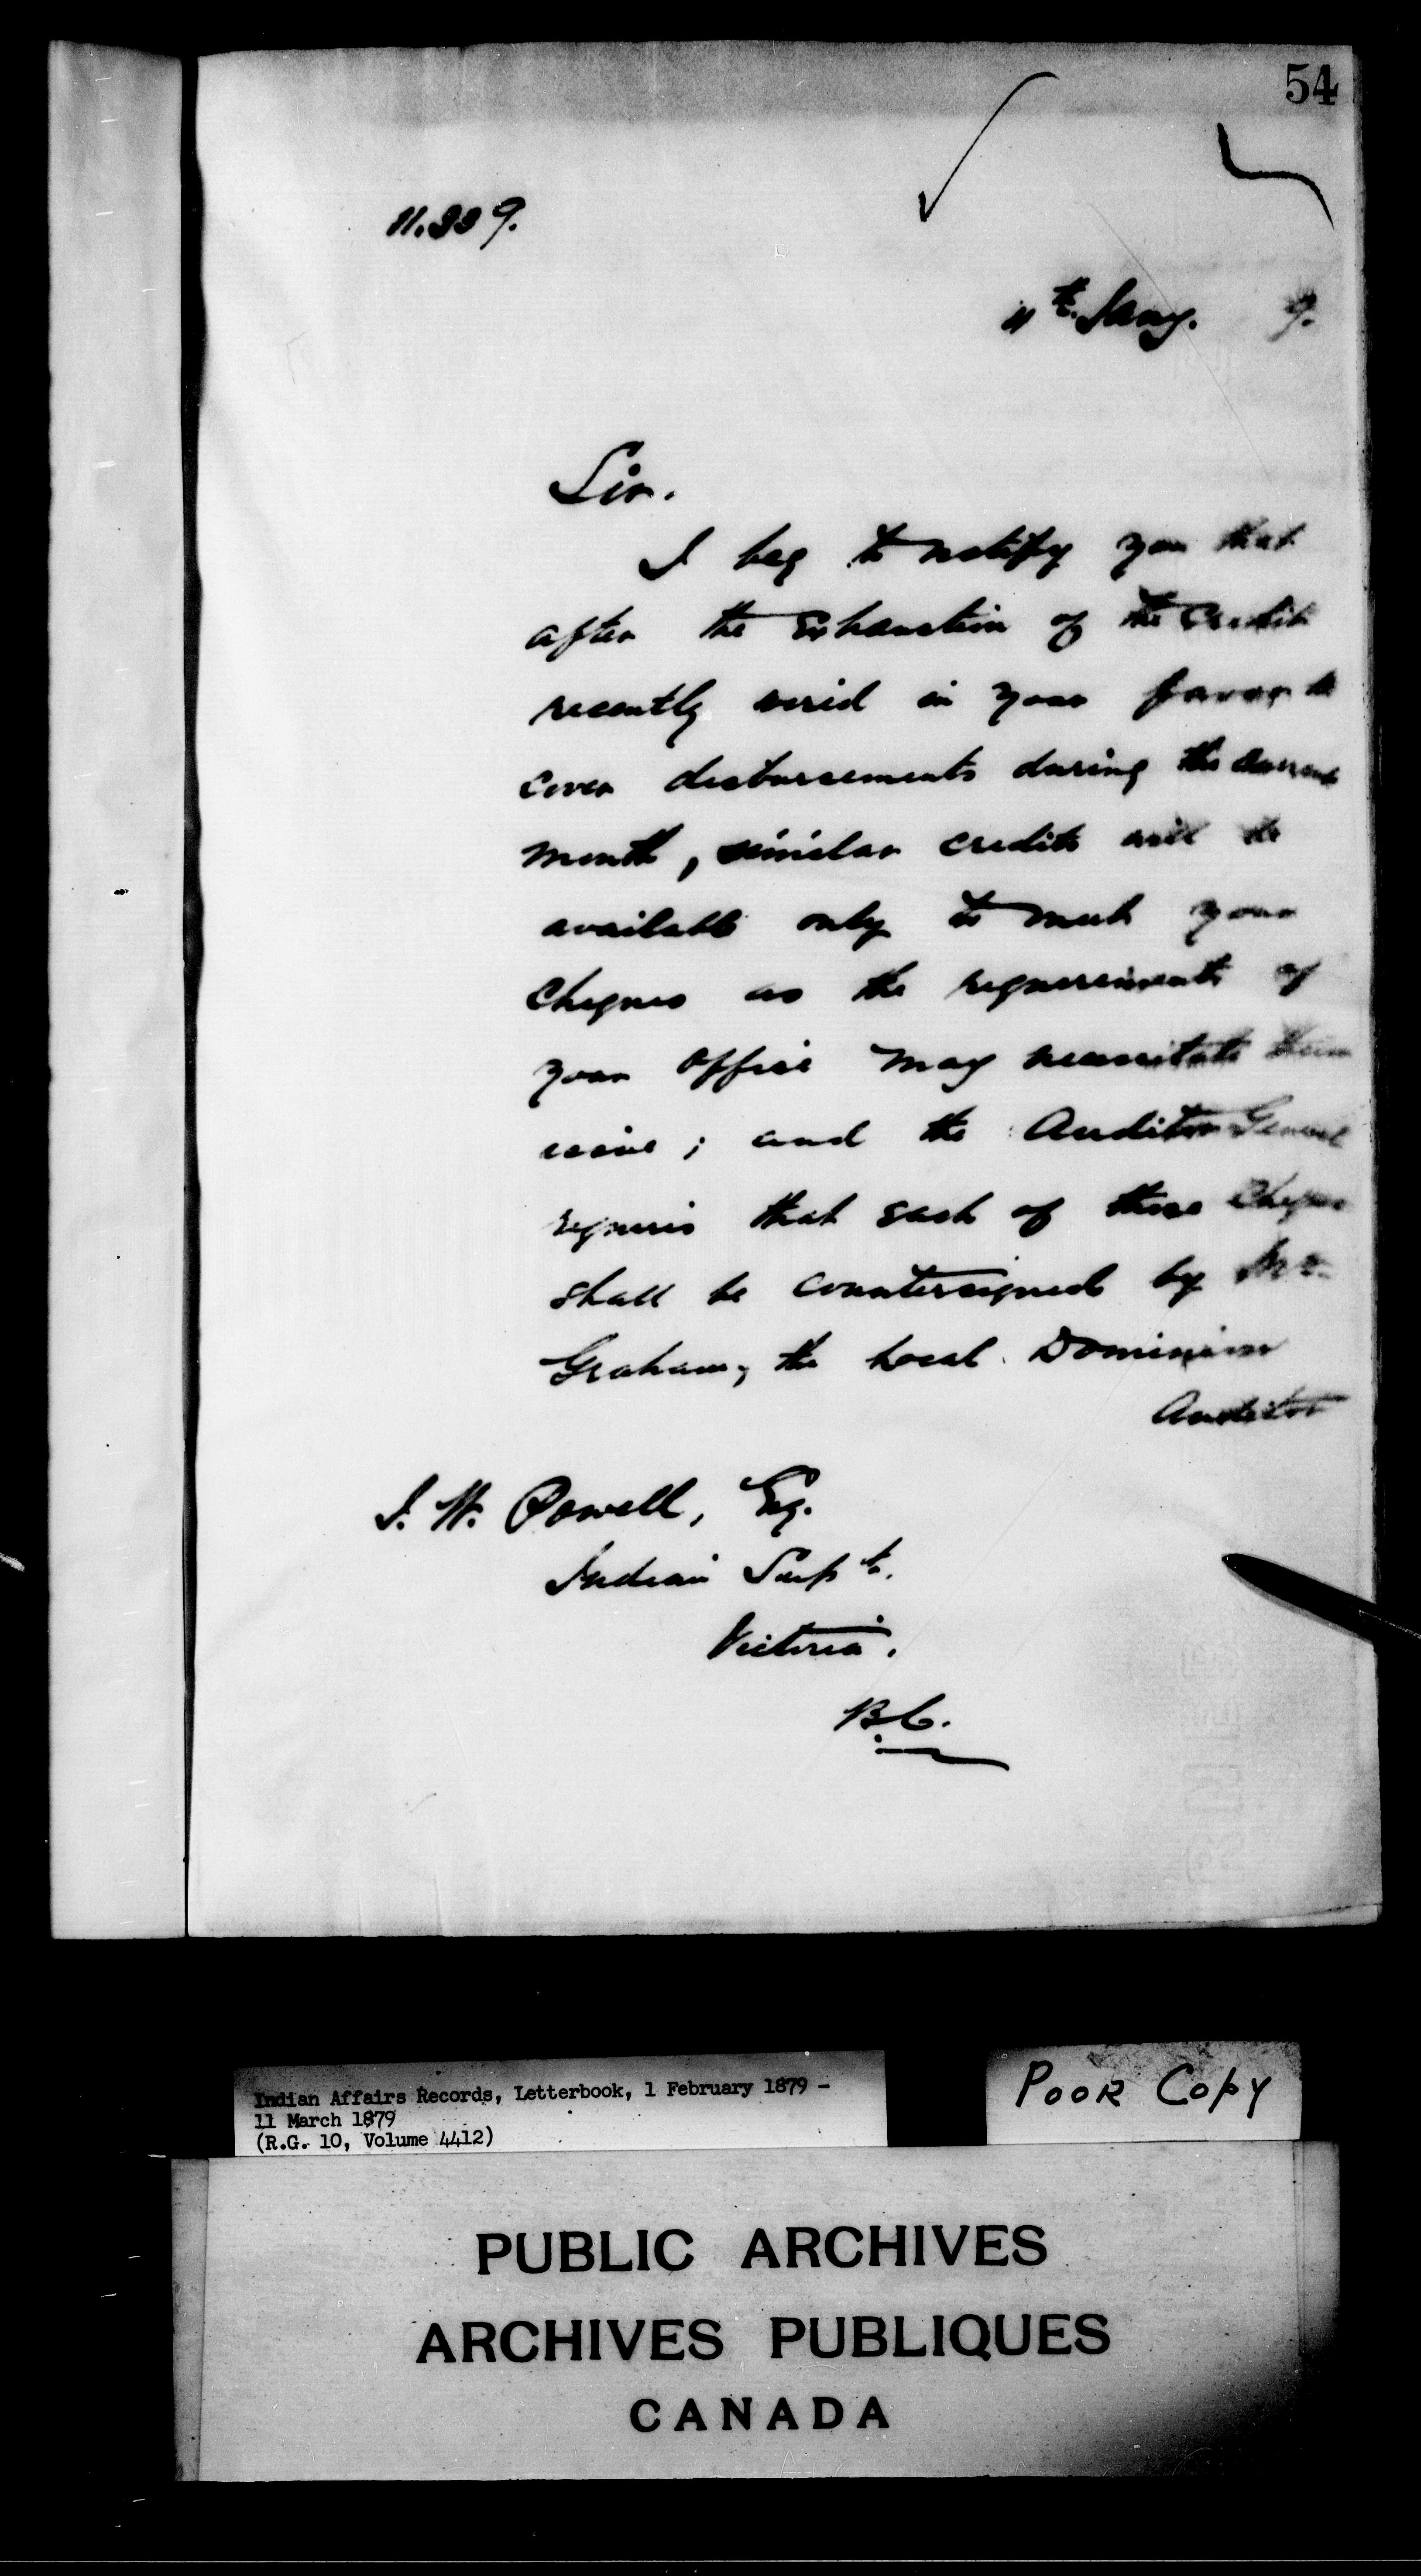 54
11.339.
11th. Jany. 9.
Sir.
I beg to notify you that
after the Exhaustion of the Credit
recently in your favor to
cover disbursements during the current
month, similar credits will be
available only to meet your
Cheques as the requirements of
your Office may necessitate their
issue; and the Auditor General
requires that each of these Cheques
shall be countersigned by Mr.
Graham, the Local Dominion
Auditor
I. W. Powell, Esq.
Indian Supt.
Victoria.
B.C.
Indian Affairs Records, Letterbook, 1 February 1879 -
11 March 1879
(R.G. 10, Volume 4412)
POOR COPY
PUBLIC ARCHIVES
ARCHIVES PUBLIQUES
CANADA